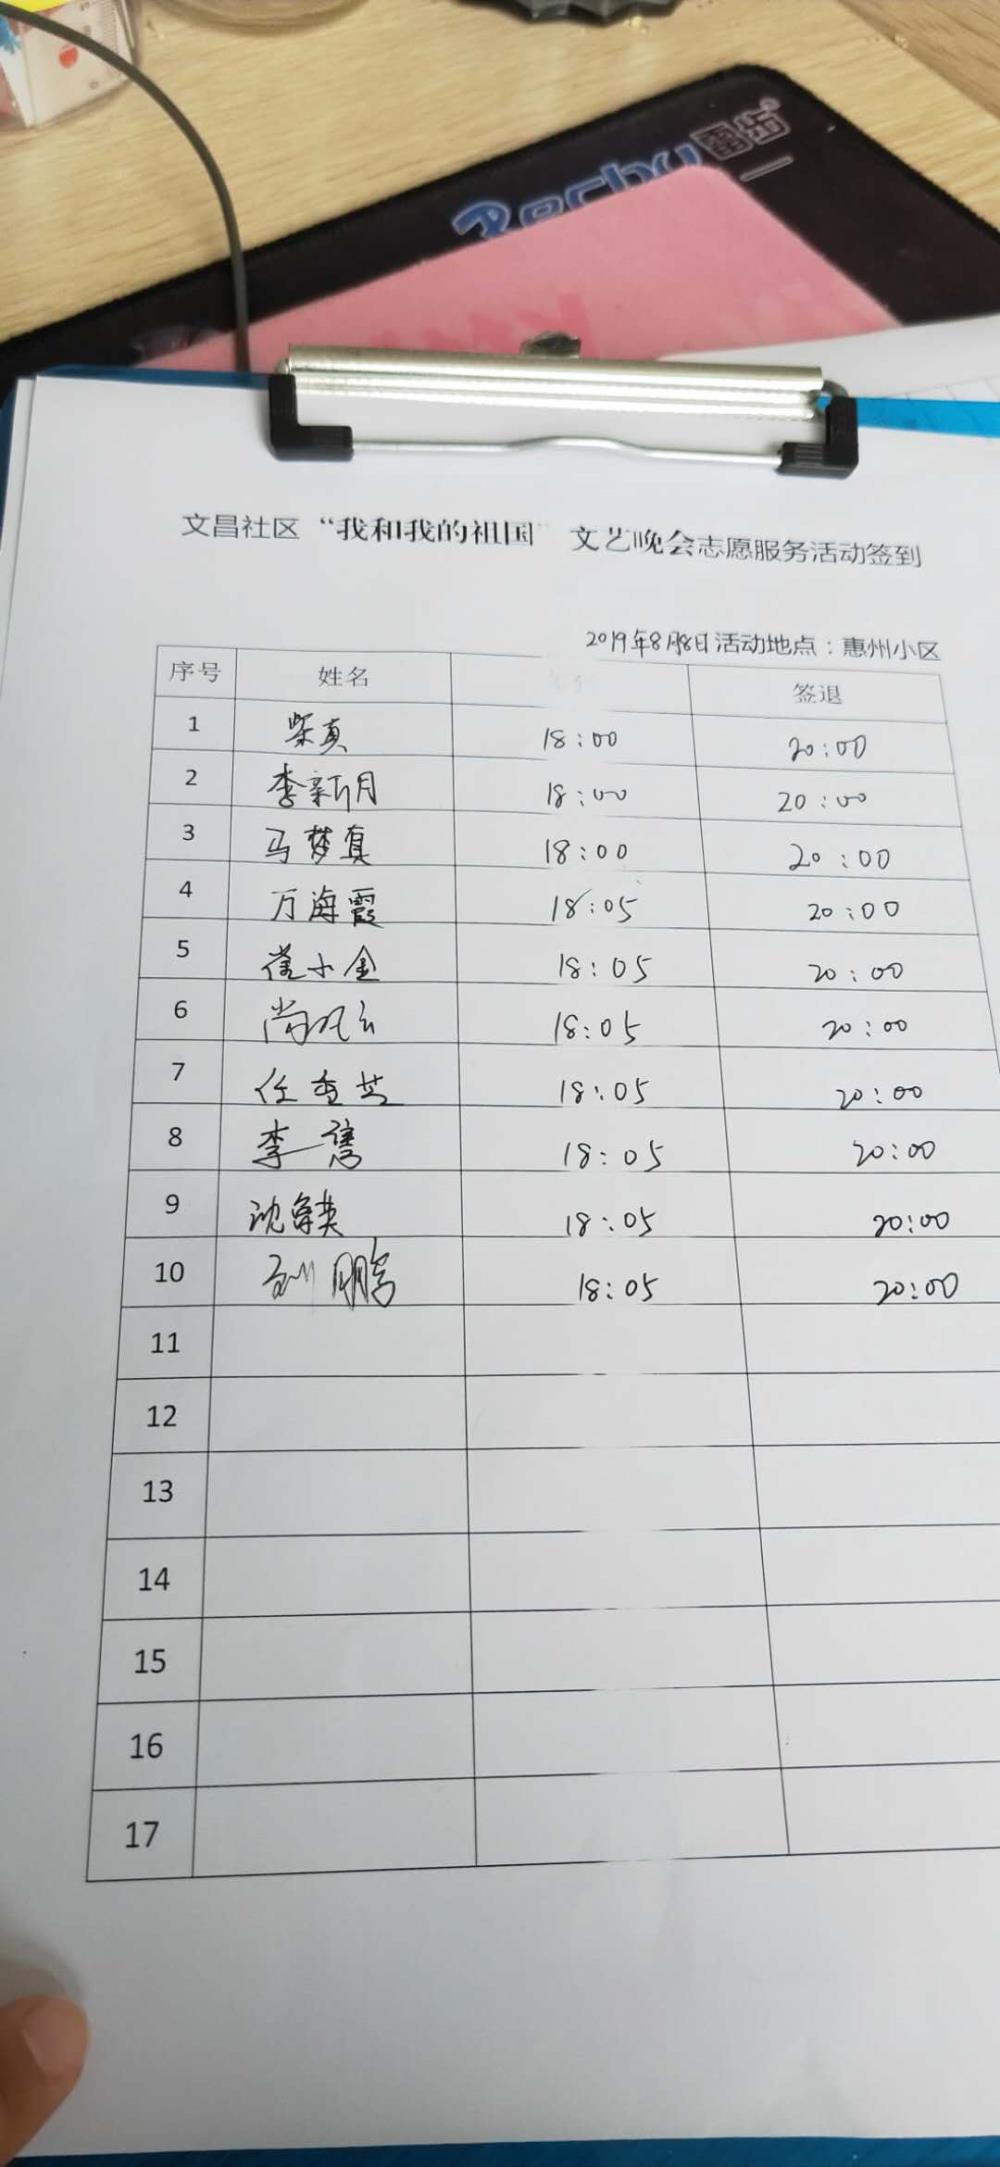 雷步
文昌社区“我和我的祖国”文艺晚会志愿服务活动签到
2019年8月8日活动地点：惠州小区
序号 姓名 签退
1 柴真 18:00 20:00
2 李新月 18:00 20:00
3 马梦真 18:00 20:00
4 万海霞 18:05 20:00
5 崔小金 18:05 20:00
6 尚风云 18:05 20:00
7 任 18:05 20:00
8 李 18:05 20:00
9 沈 英 18:05 20:00
10 鹏 18:05 20:00
11
12
13
14
15
16
17